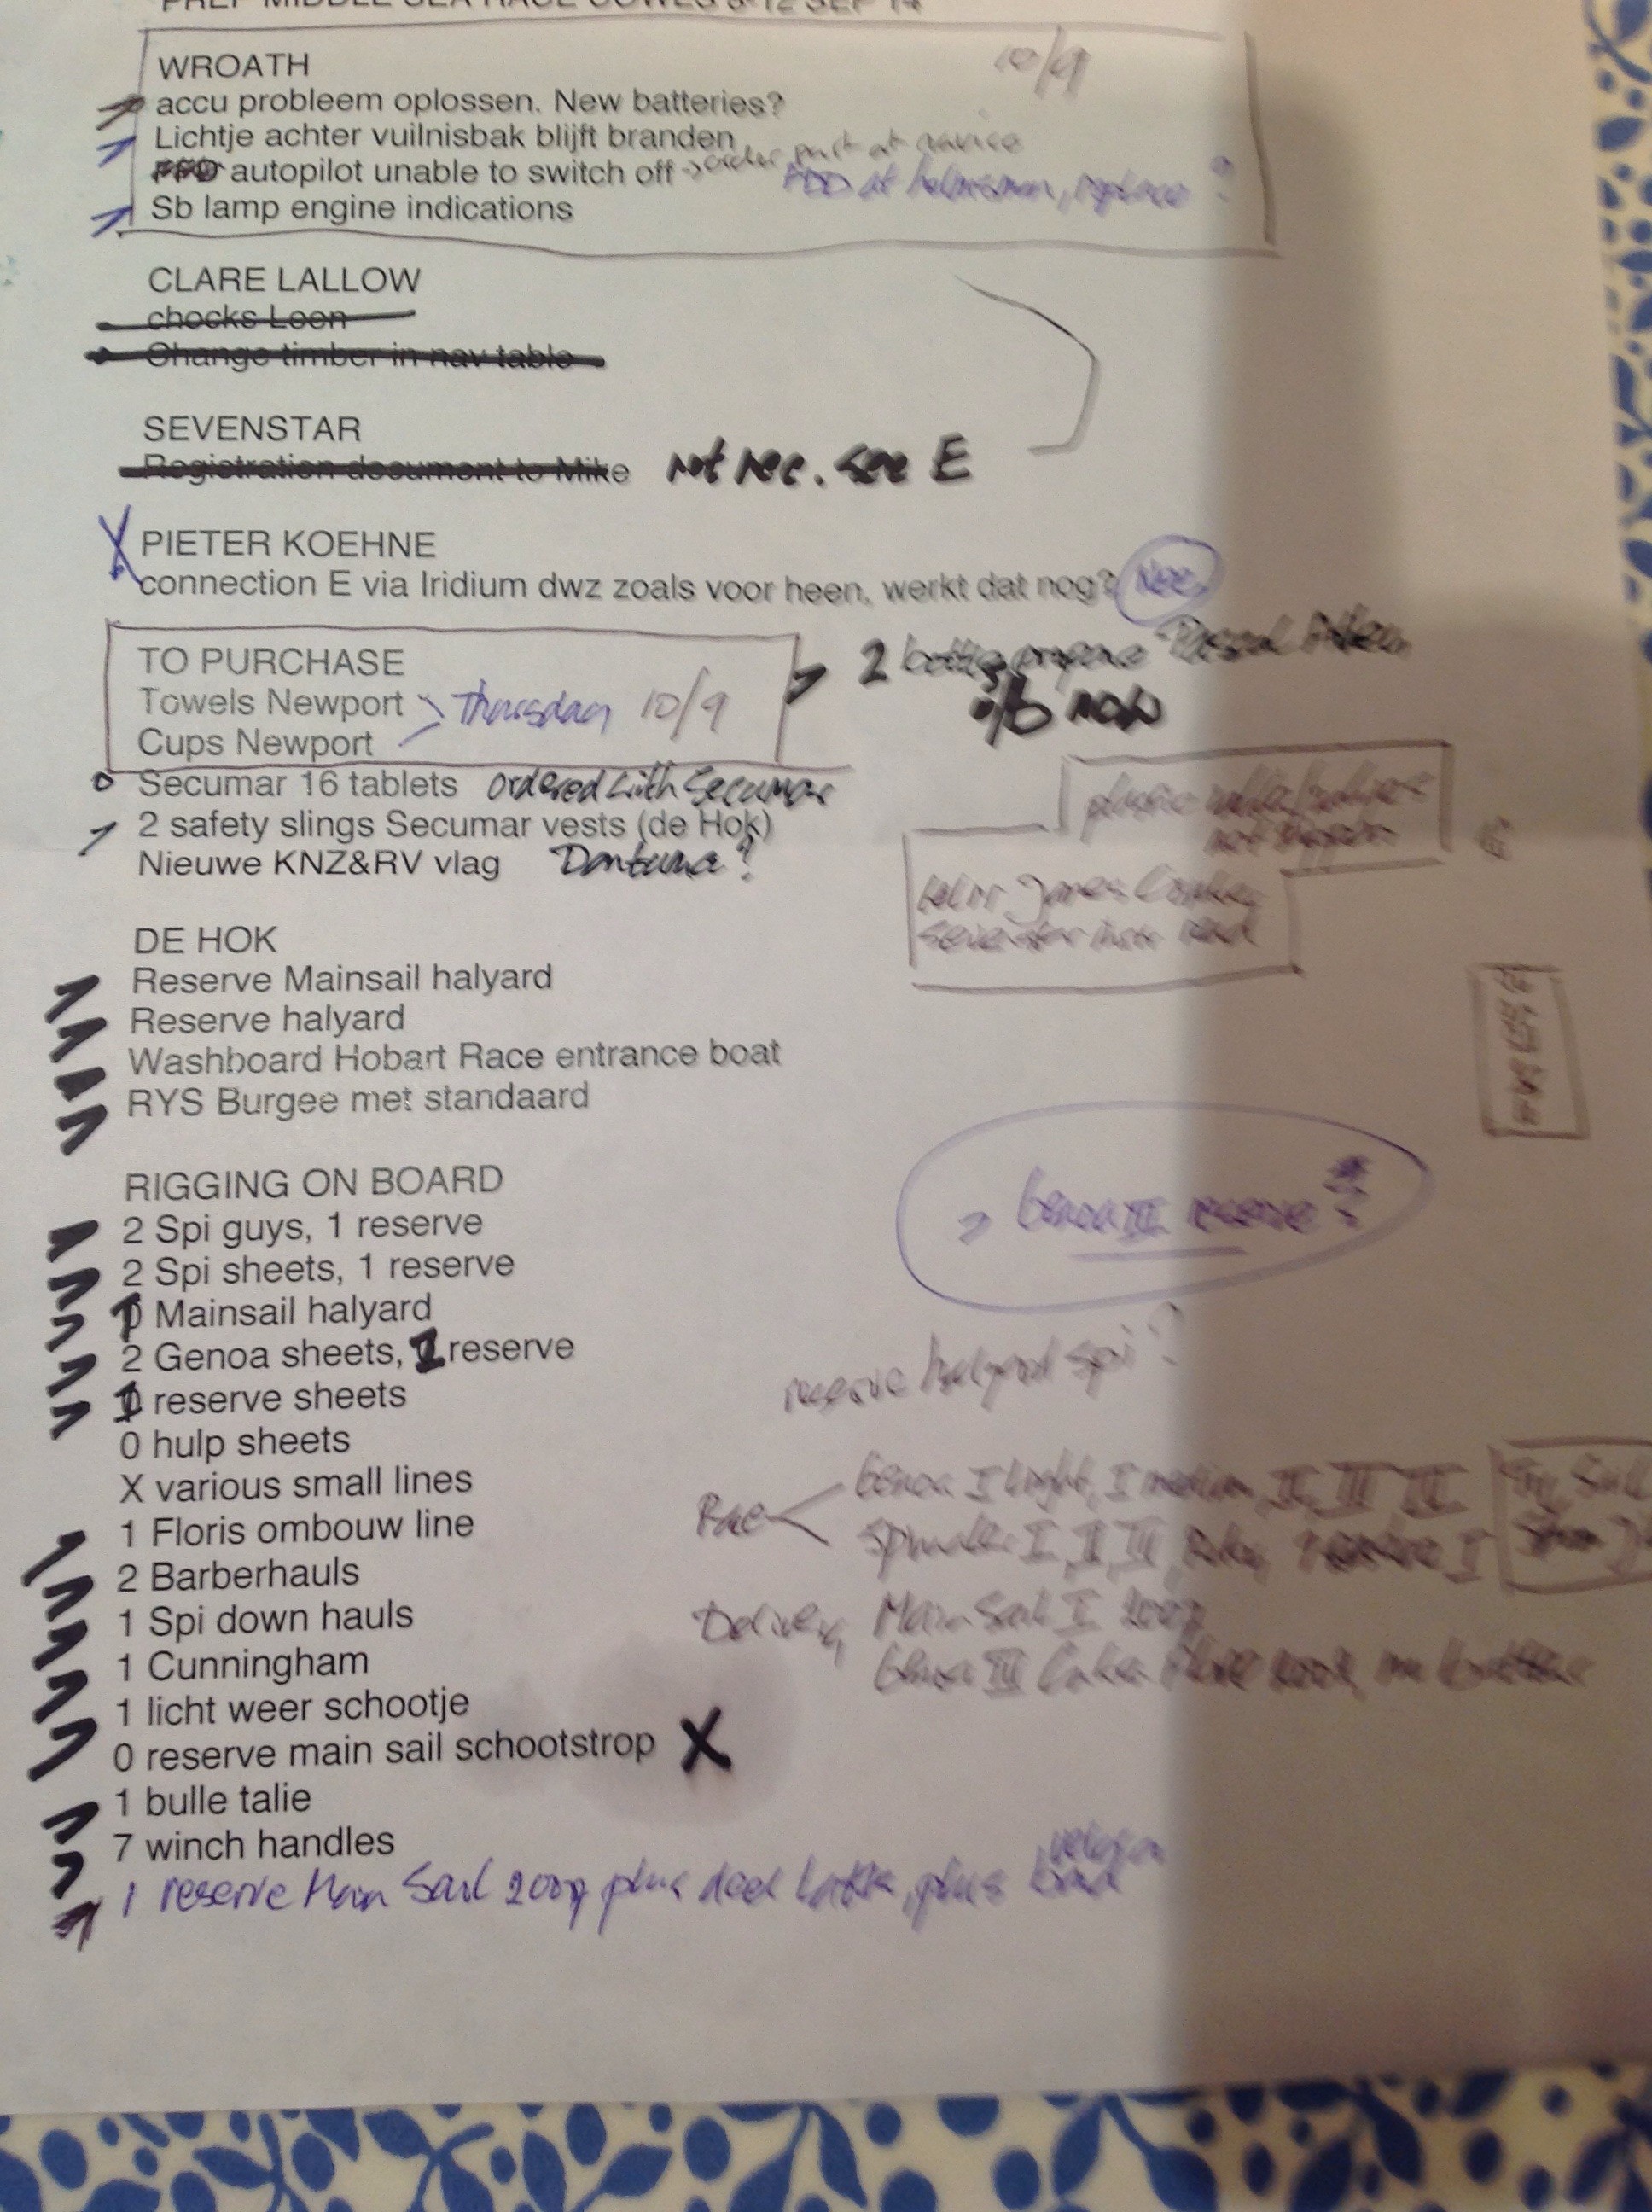 PREP MIDDLE SEA RACE COWES 8-12 SEP 14
WROATH
10/9
accu probleem oplossen. New batteries?
Lichtje achter vuilnisbak blijft branden
autopilot unable to switch off order part at
at helmsman, replace ?
Sb lamp engine indications
CLARE LALLOW
chocks Leen
Change timber in nav table
SEVENSTAR
Registration document to Mike not nec. see E
PIETER KOEHNE
connection E via Iridium dwz zoals voor heen, werkt dat nog? Nee
TO PURCHASE
Towels Newport
Thursday 10/9
Cups Newport
2 propane
o/b now
Secumar 16 tablets ordered with Secumar
2 safety slings Secumar vests (de Hok)
Nieuwe KNZ&RV vlag Dantuma?
plastic
James
DE HOK
Reserve Mainsail halyard
Reserve halyard
Washboard Hobart Race entrance boat
RYS Burgee met standaard
Genoa III reserve ?
RIGGING ON BOARD
2 Spi guys, 1 reserve
2 Spi sheets, 1 reserve
1 Mainsail halyard
2 Genoa sheets, 1 reserve
reserve halyard spi?
1 reserve sheets
0 hulp sheets
X various small lines
1 Floris ombouw line
2 Barberhauls
1 Spi down hauls
1 Cunningham
1 licht weer schootje
0 reserve main sail schootstrop X
1 bulle talie
7 winch handles
Race
Genoa I light, I medium, II, III
I, II, III
Delivery Main Sail I
Genoa III
1 reserve Main Sail 2009 plus deel plus